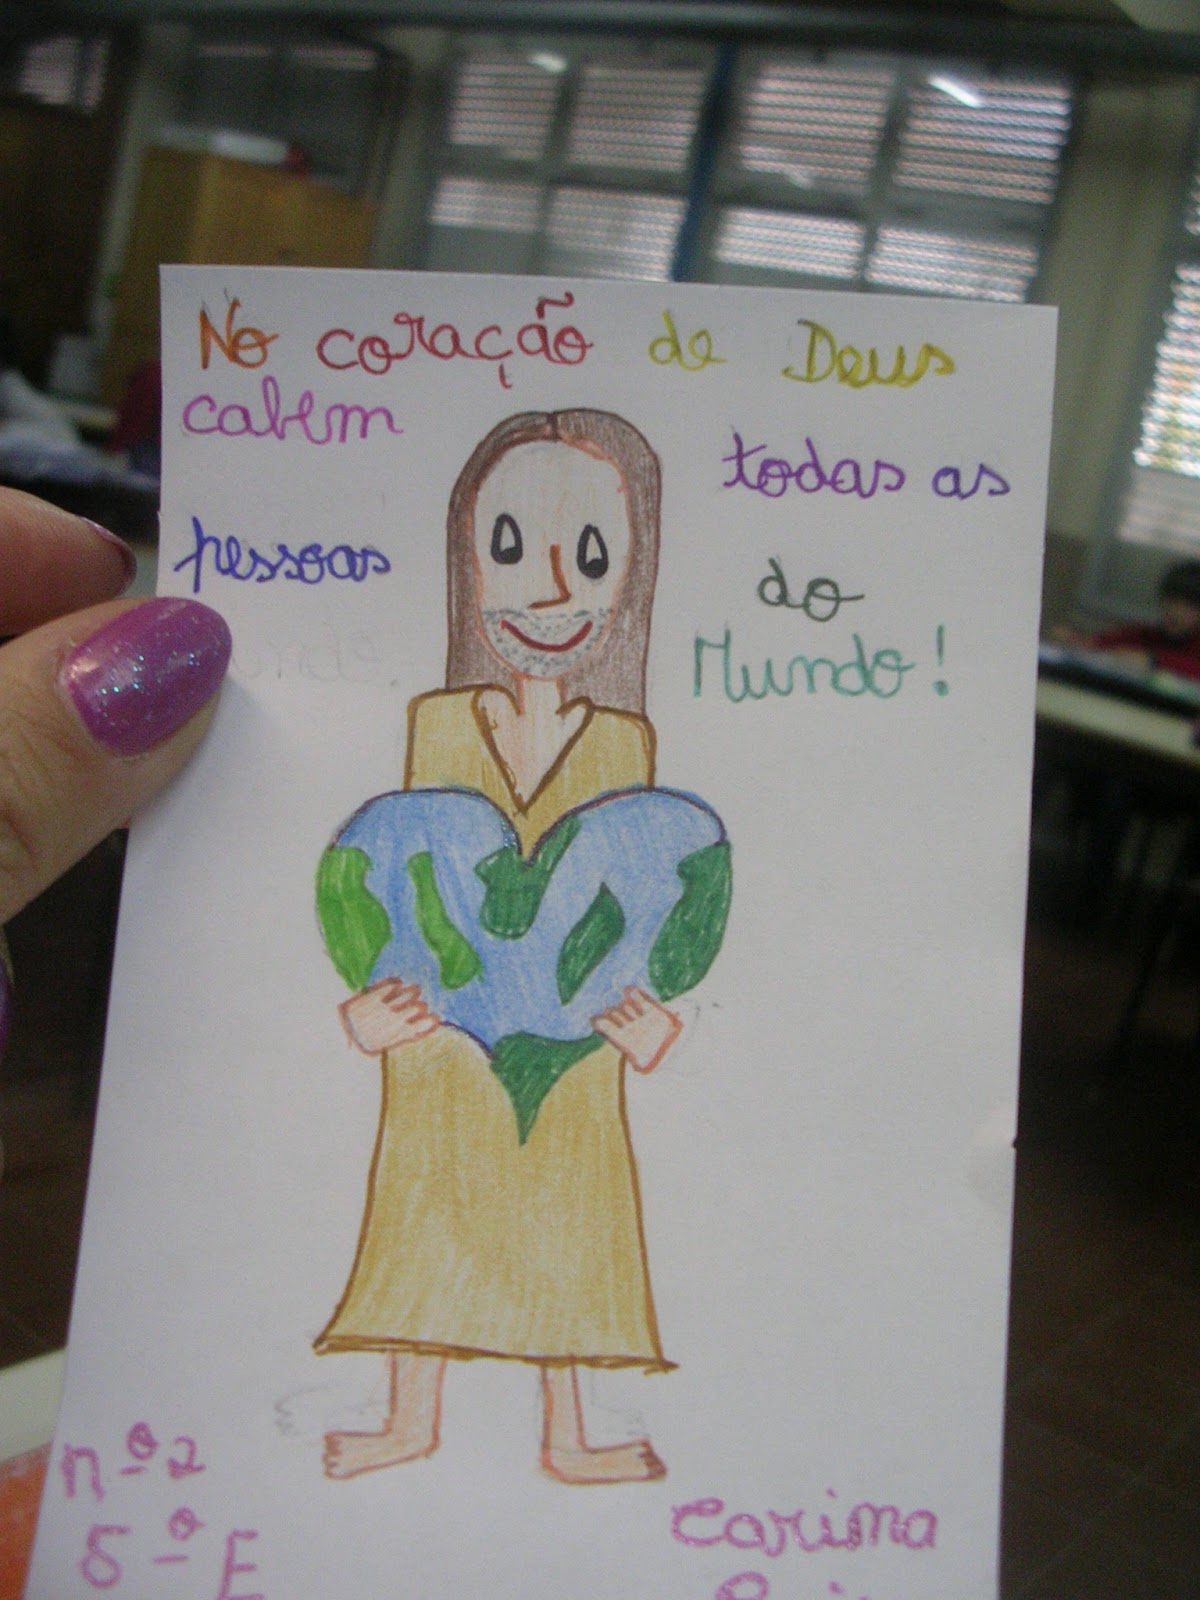 No coração de Deus
cabem todas as
pessoas do
Mundo!
nº2
5º E
Carima